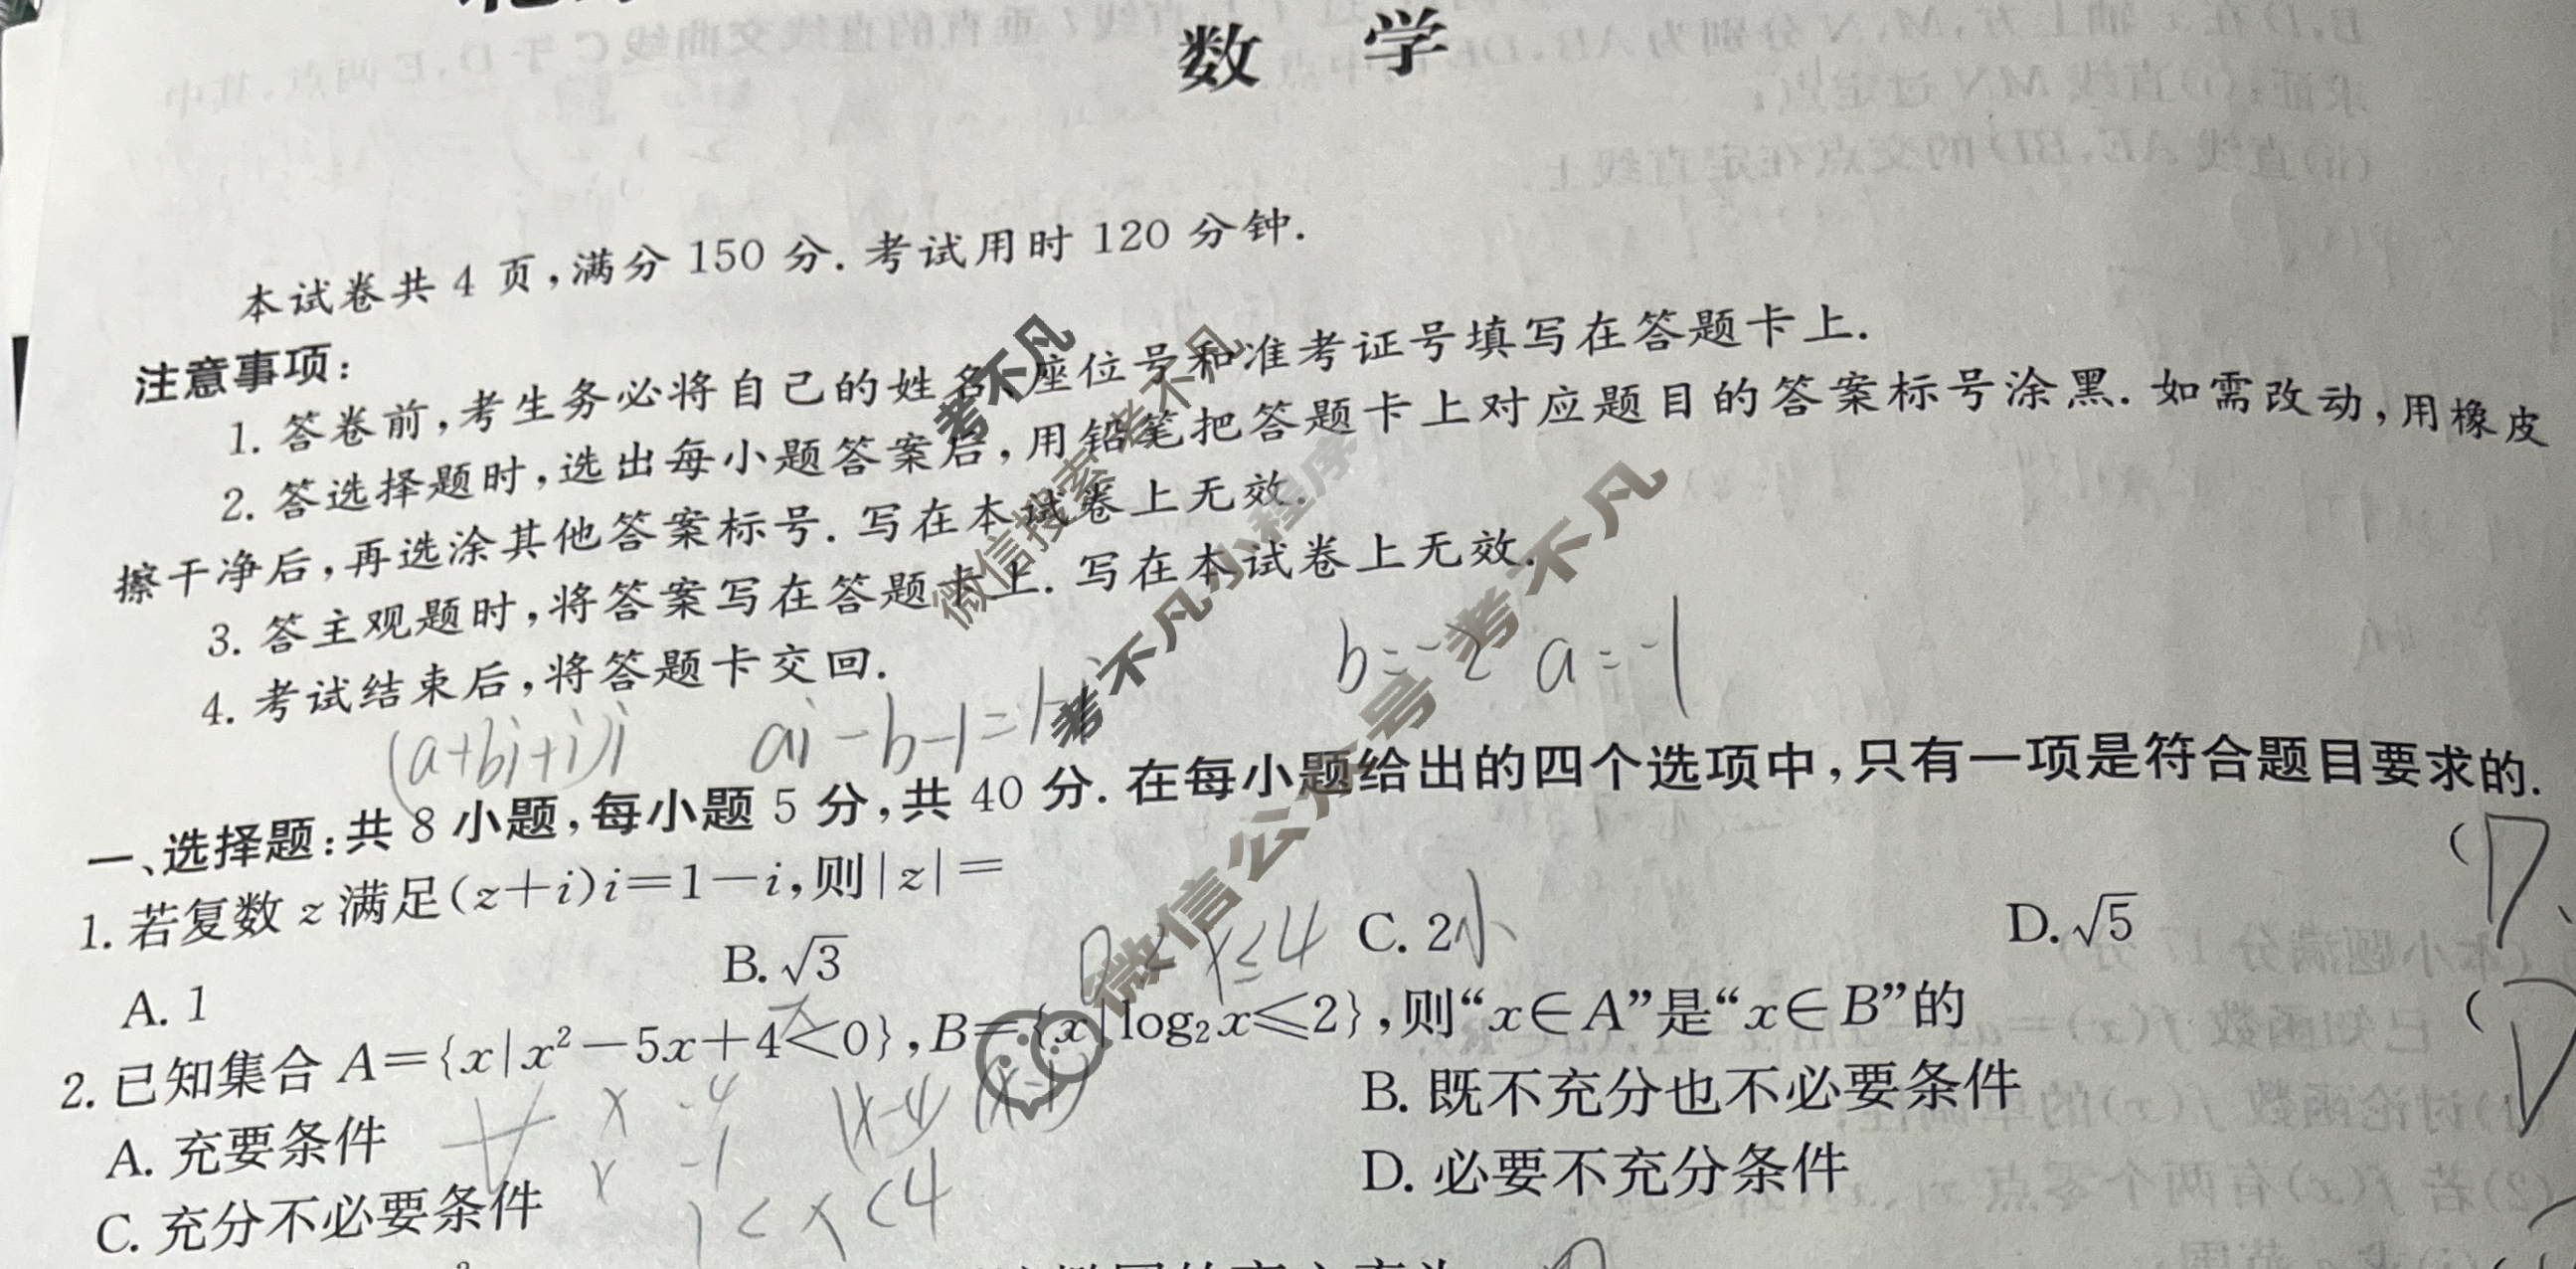 数 学
本试卷共 4 页,满分 150 分. 考试用时 120 分钟.
注意事项:
1. 答卷前,考生务必将自己的姓名、座位号和准考证号填写在答题卡上.
2. 答选择题时,选出每小题答案后,用铅笔把答题卡上对应题目的答案标号涂黑. 如需改动,用橡皮
擦干净后,再选涂其他答案标号. 写在本试卷上无效.
3. 答主观题时,将答案写在答题卡上. 写在本试卷上无效.
4. 考试结束后,将答题卡交回.
b=-2 a=-1
(a+bi+i)i ai-b-1=1-i
一、选择题:共 8 小题,每小题 5 分,共 40 分. 在每小题给出的四个选项中,只有一项是符合题目要求的.
1. 若复数 z 满足(z+i)i=1-i,则|z|= ( D
A. 1 B. √3 C. 2 D. √5
0< x≤4 小
2. 已知集合 A={x|x²-5x+4<0},B={x|log₂x≤2},则“x∈A”是“x∈B”的 ( D
A. 充要条件 B. 既不充分也不必要条件
x -4 (x-4)(x-1)
x -1
C. 充分不必要条件 D. 必要不充分条件
1<x<4
考不凡
微信搜索 考不凡
考不凡小程序
微信公众号 考不凡